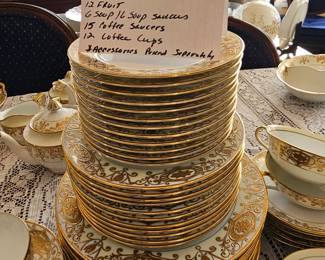 12 FRUIT
6 Soup 16 Soup Saucers
15 Coffee Saucers
12 Coffee Cups
3 Accessories Priced Seperately